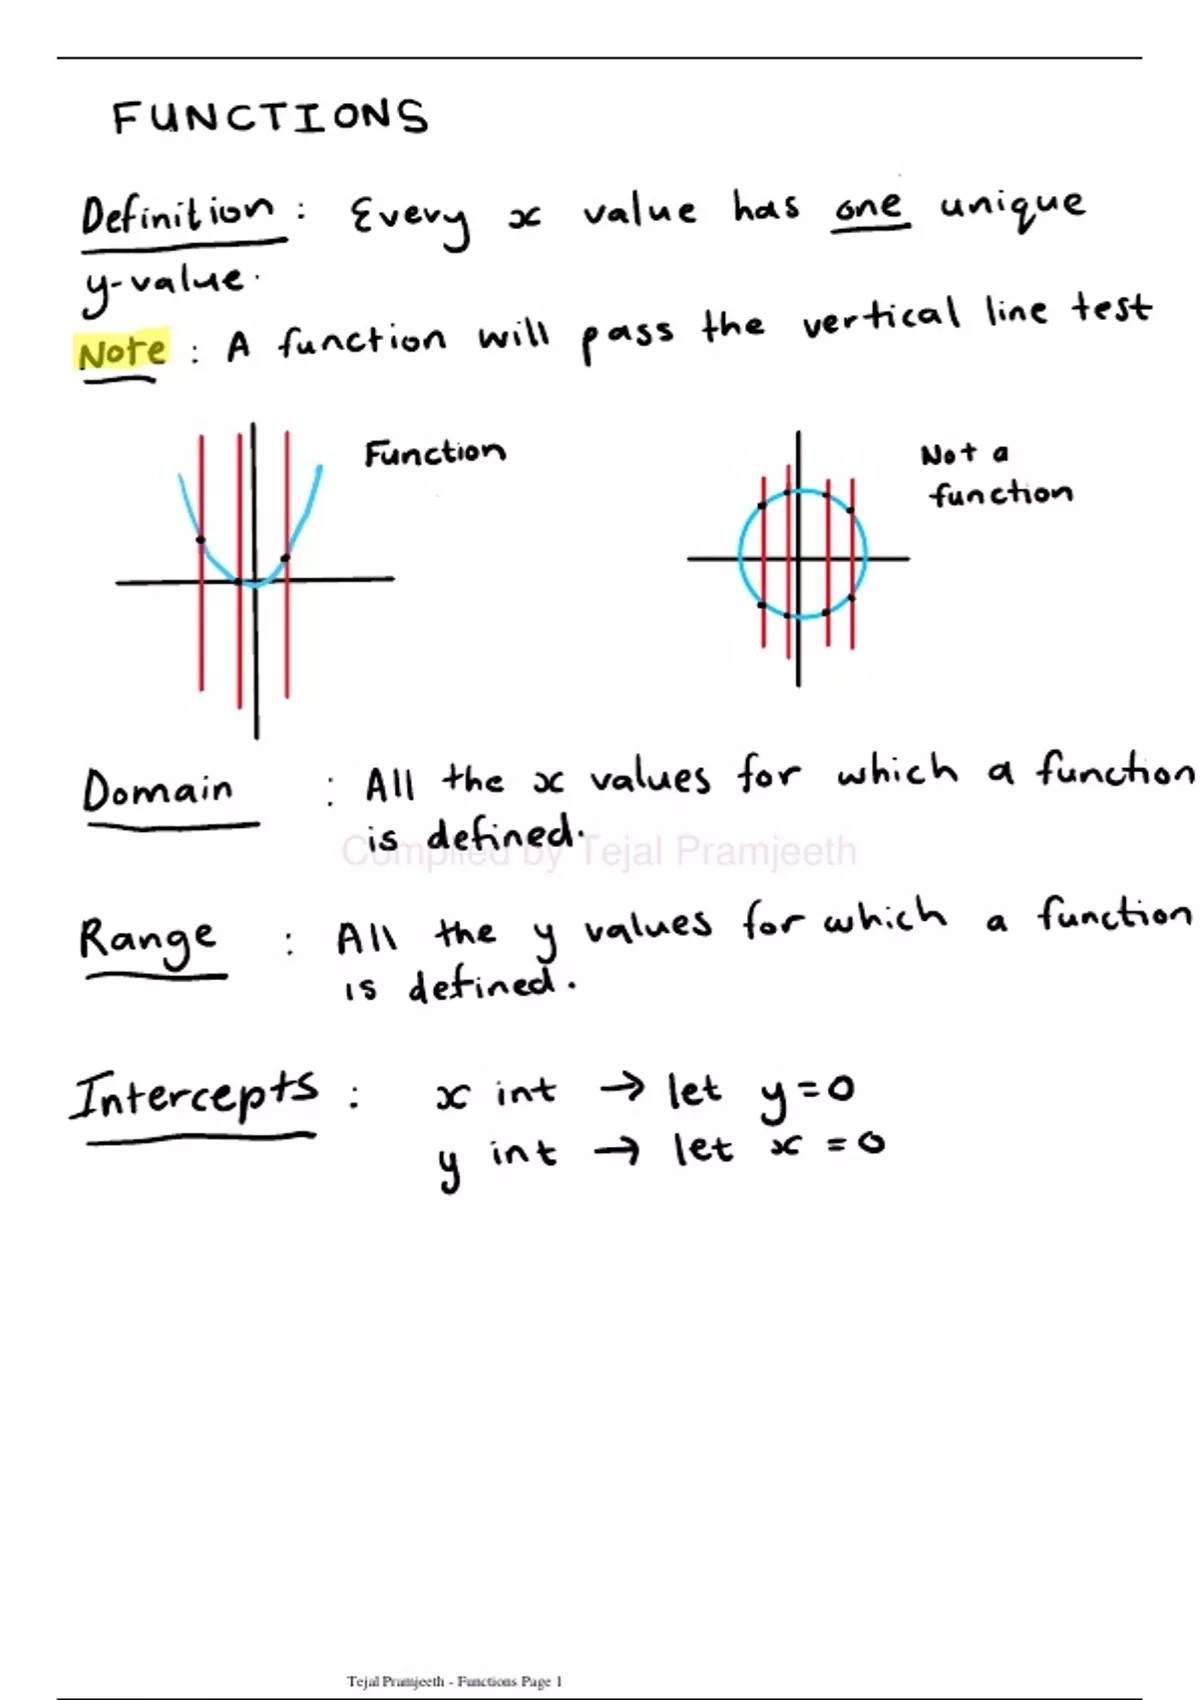 FUNCTIONS
Definition: Every x value has one unique
y-value.
Note: A function will pass the vertical line test
Function
Not a
function
Domain : All the x values for which a function
is defined.
Compiled by Tejal Pramjeeth
Range : All the y values for which a function
is defined.
Intercepts: x int → let y=0
y int → let x =0
Tejal Pramjeeth - Functions Page 1